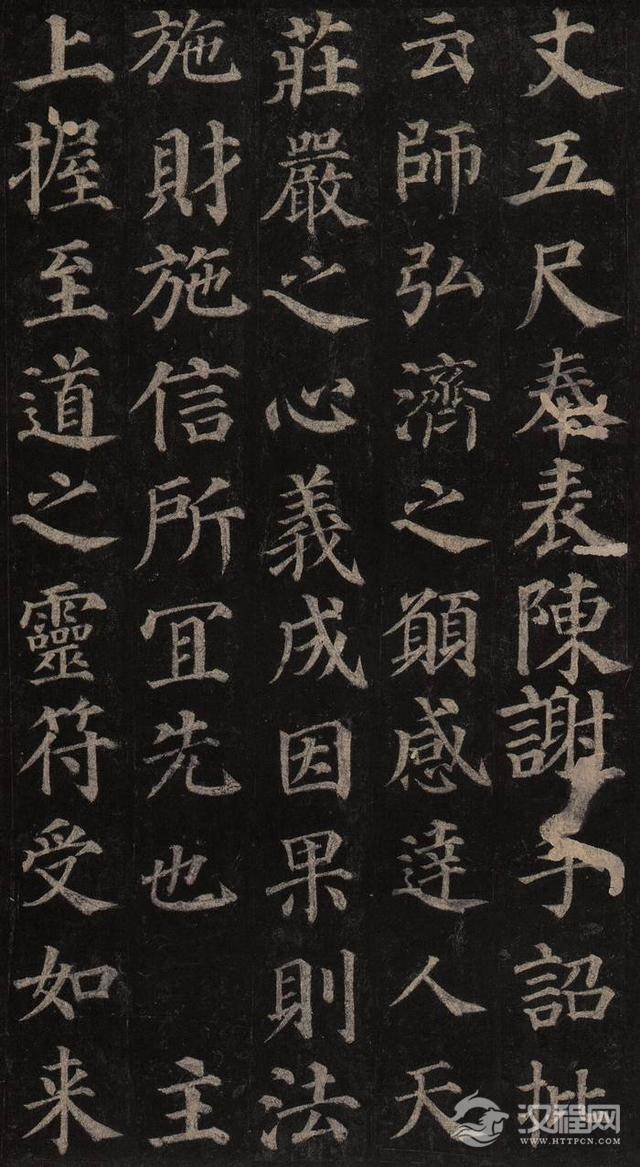 丈五尺奉表陳謝手詔批
云師弘濟之願感達人天
莊嚴之心義成因果則法
施財施信所冝先也 主
上握至道之靈符受如来
汉程网
WWW.HTTPCN.COM